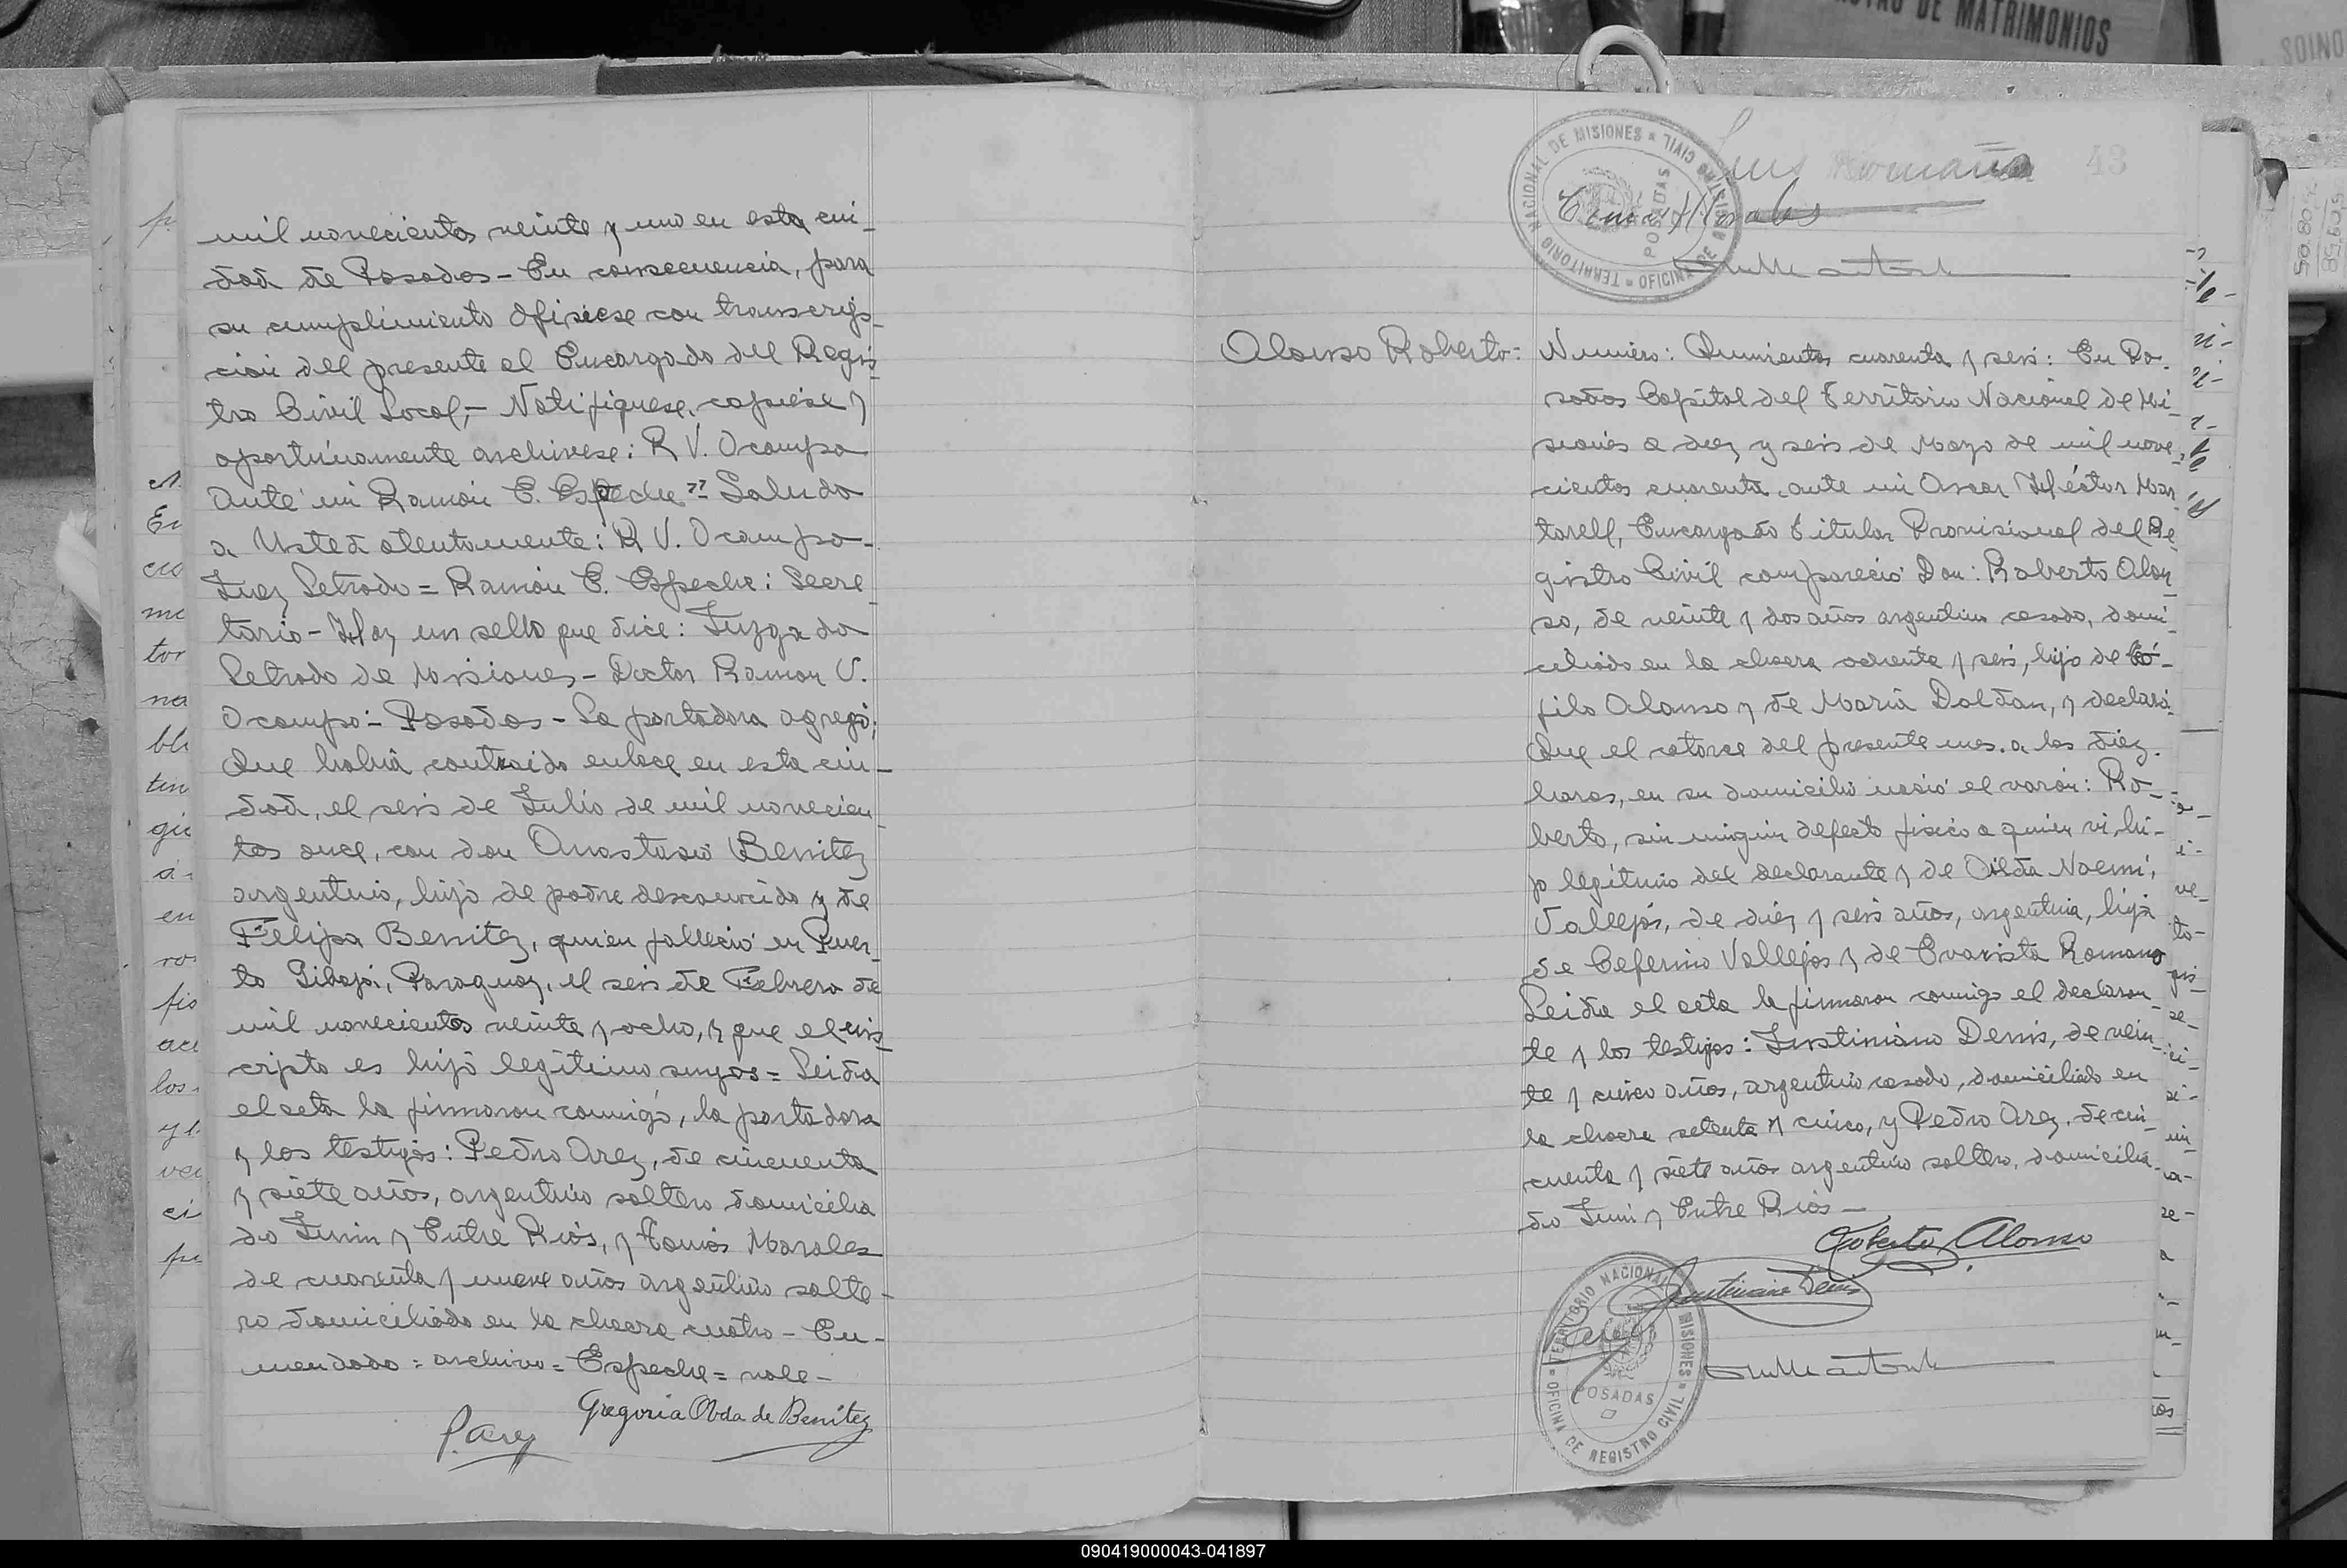 mil novecientos veinte y uno en esta ciu_
dad de Posadas - En consecuencia, para
su cumplimiento ofisiese con transcrip_
ción del presente el Encargado del Regis_
tro Civil Local,- Notifiquese, copiese y
oportunamente archivese: R V. Ocampo
Ante mi Ramón E. Espeche" Saludo
a Usted atentamente: R V. Ocampo-
Juez Letrado = Ramón E. Espeche: Secre_
tario - Hay un sello que dice: Juzgado
Letrado de Misiones - Doctor Ramon V.
Ocampo - Posadas - La portadora agregó:
Que había contraido enlace en esta ciu_
dad, el seis de Julio de mil novecien_
tos once, con don Anastasio Benitez
argentino, hijo de padre desconocido y de
Felipa Benitez, quien falleció en Puer_
to Paraguay, el seis de Febrero de
mil novecientos veinte y ocho, y que el ins_
cripto es hijo legítimo suyos = Leida
el acta la firmaron conmigo, la portadora
y los testigos: Pedro Arez, de cincuenta
y siete años, argentino soltero domicilia
do Junin y Entre Rios, y Tomás Morales
de cuarenta y nueve años argentino solte_
ro domiciliado en la chacra cuatro - En_
mendado = archivo = Espeche = vale -
Gregoria Obda de Benitez
P. Arez
43
TERRITORIO NACIONAL DE MISIONES OFICINA DE REGISTRO CIVIL
POSADAS
Luis Romaña
Tomas Morales
Alonso Roberto:
Numero: Quinientos cuarenta y seis: En Po_
sadas Capital del Territorio Nacional de Mi_
siones a diez y seis de Mayo de mil nove_
cientos cuarenta, ante mi Oscar Héctor Mar
torell, Encargado Titular Provisional del Re_
gistro Civil compareció Don: Roberto Alon_
so, de veinte y dos años argentino casado, domi_
ciliado en la chacra ochenta y seis, hijo de Teó_
filo Alonso y de María Doldan, y declaró:
Que el catorce del presente mes. a las diez.
horas, en su domicilio nació el varón: Ro_
berto, sin ningún defecto fisico a quien vi, hi_
jo legítimo del declarante y de Oilda Noemi,
Vallejos, de diez y seis años, argentina, hija
de Ceferino Vallejos y de Evarista Romano
Leida el acta la firmaron conmigo el declaran_
te y los testigos: Justiniano Denis, de vein_
te y cinco años, argentino casado, domiciliado en
la chacra setenta y cinco, y Pedro Arez, de cin_
cuenta y siete años argentino soltero, domicilia_
do Junin y Entre Rios -
Roberto Alonso
Justiniano Denis
P. Arez
TERRITORIO NACIONAL MISIONES OFICINA DE REGISTRO CIVIL
POSADAS
DE MATRIMONIOS
090419000043-041897